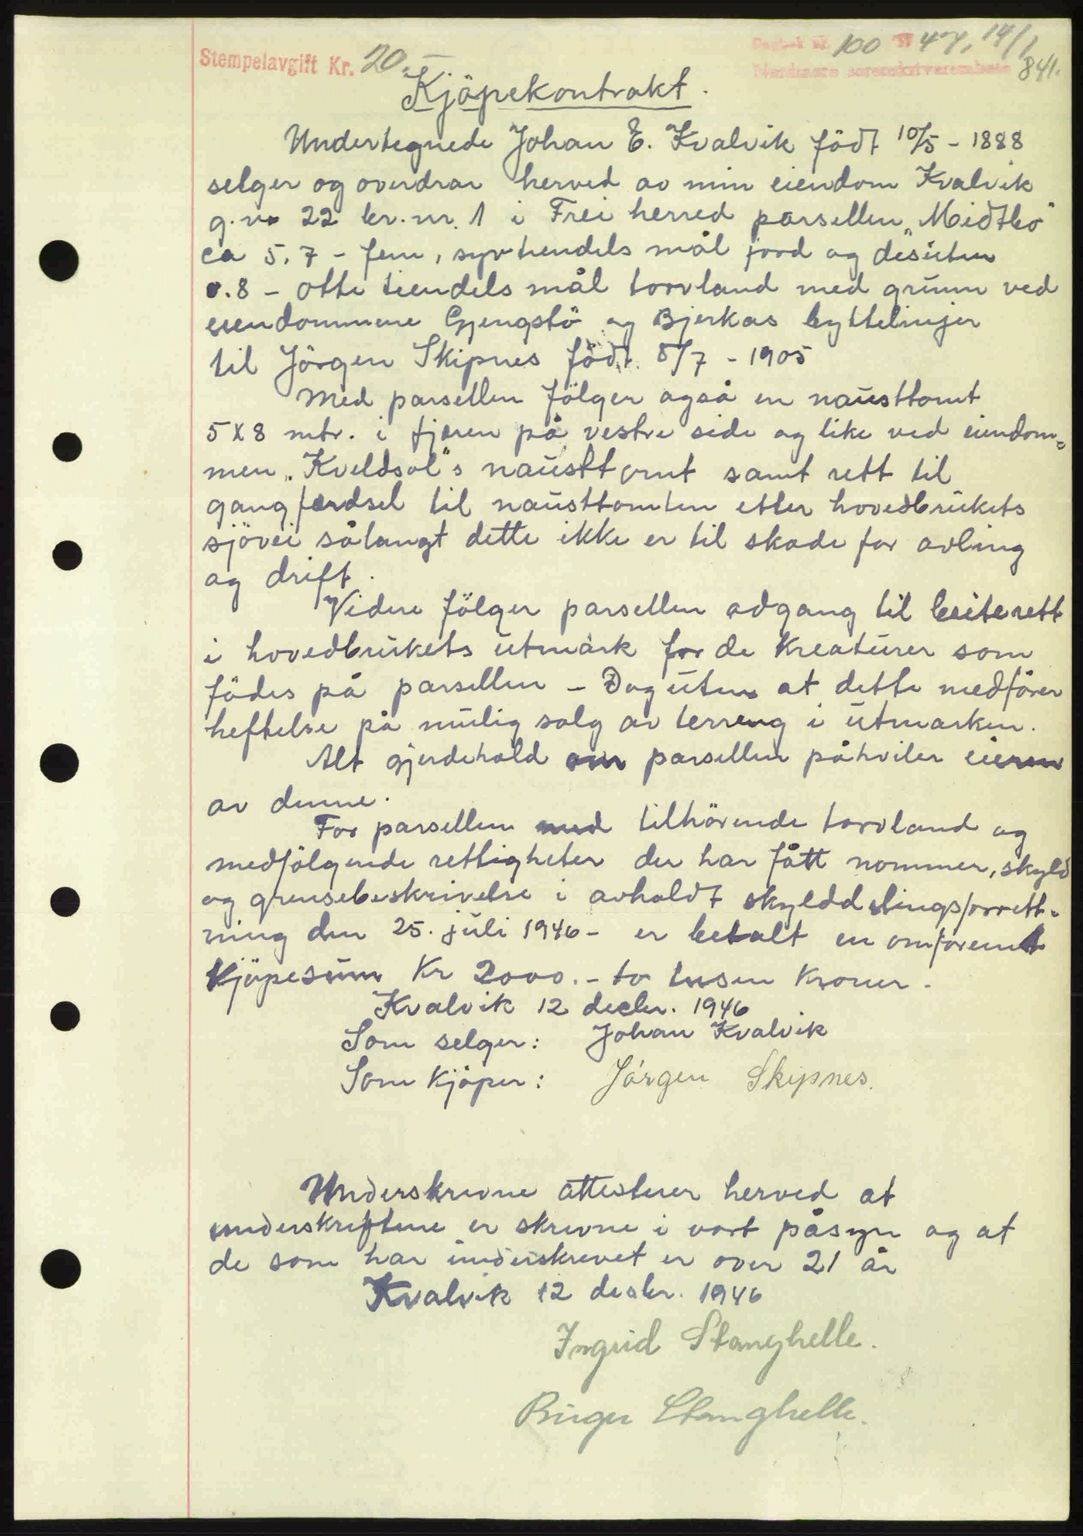 Stempelavgift Kr. 20.-
Dagbok nr. 100 19 47, 14/1
Nordmøre sorenskriverembete 841.
Kjöpekontrakt.
Undertegnede Johan E. Kvalvik födt 10/5 - 1888
selger og overdrar herved av min eiendom Kvalvik
g.nr 22 br.nr. 1 i Frei herred parsellen „Midtbö"
ca 5,7 - fem, syvtiendels mål jord og desuten
0.8 - otte tiendels mål torvland med grunn ved
eiendommene Gjengstö og Bjerkås byttelinjer
til Jörgen Skipnes födt 8/7 - 1905
Med parsellen fölger også en nausttomt
5 X 8 mtr. i fjæren på vestre side og like ved eiendom=
men „Kveldsol"s nausttomt samt rett til
gangferdsel til nausttomten etter hovedbrukets
sjövei sålangt dette ikke er til skade for avling
og drift.
Videre fölger parsellen adgang til beiterett
i hovedbrukets utmark for de kreaturer som
födes på parsellen - Dog uten at dette medförer
heftelse på mulig salg av terreng i utmarken.
Alt gjerdehold om parsellen påhviler eieren
av denne.
For parsellen med tilhörende torvland og
medfölgende rettigheter der har fått nommer, skyld
og grensebeskrivelse i avholdt skylddelingsforrett-
ning den 25. juli 1946 - er betalt en omforenet
Kjöpesum Kr 2000.- to tusen Kroner.
Kvalvik 12 decbr. 1946
Som selger: Johan Kvalvik
Som Kjöper: Jörgen Skipnes.
Underskrevne attesterer herved at
underskriftene er skrevne i vort påsyn og at
de som har underskrevet er over 21 år
Kvalvik 12 desbr. 1946
Ingrid Stanghelle.
Birger Stanghelle.